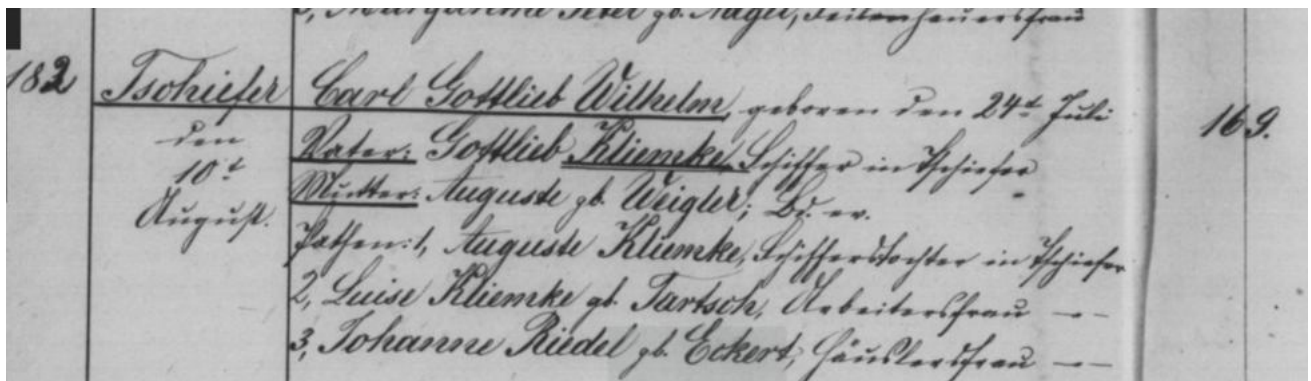 3, Marganme Peter gb. Nagel, Feilenhauersfrau
182 Tschiefer Carl Gottlieb Wilhelm, geboren den 24t Juli 169.
den Vater: Gottlieb Kliemke, Schiffer in Tschiefer
10t Mutter: Auguste gb. Weigler; Bd. ev.
August. Pathen: 1, Auguste Kliemke, Schifferstochter in Tschiefer
2, Luise Kliemke gb. Tartsch, Arbeitersfrau —
3, Johanne Riedel gb. Eckert, Häuslersfrau —